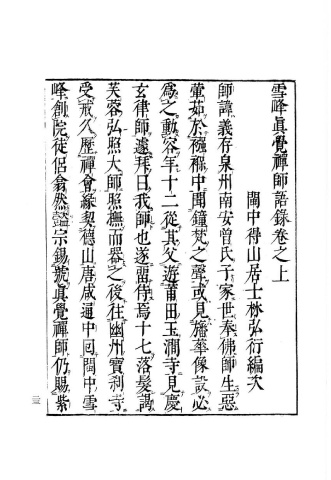 雪峰眞覺禪師語錄卷之上
閩中得山居士林弘衍編次
師諱義存泉州南安曾氏子家世奉佛師生惡
葷茹於襁褓中聞鐘梵之聲或見旛華像設必
爲之動容年十二從其父遊莆田玉澗寺見慶
玄律師遽拜曰我師也遂畱侍焉十七落髮謁
芙蓉弘照大師照撫而器之後往幽州寶刹寺
受戒久歷禪會緣契德山唐咸通中回閩中雪
峰創院徒侶翕然懿宗錫號眞覺禪師仍賜紫